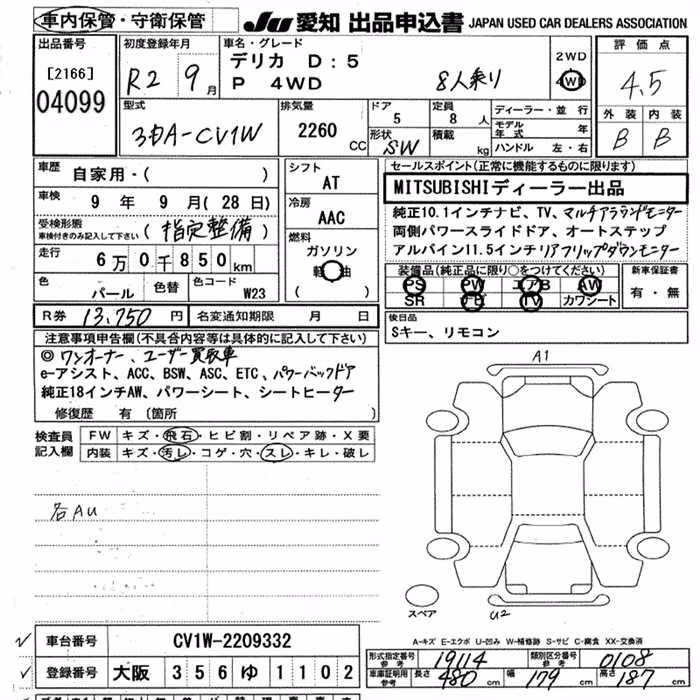 車内保管・守衛保管
JU 愛知 出品申込書 JAPAN USED CAR DEALERS ASSOCIATION
出品番号
[2166]
04099
初度登録年月
R2 9月
車名・グレード
デリカ D：5
P 4WD 8人乗り
2WD
4WD
評価点
4.5
外装 内装
B B
型式
3DA-CV1W
排気量
2260 CC
ドア
5
形状
SW
定員
8 人
積載
kg
ディーラー・並行
モデル年式 年
ハンドル 左・右
車歴
自家用・( )
車検
9 年 9 月 ( 28 日)
受検形態
車検付きのみ記入して下さい
(指定整備)
走行
6万0千850km
色
パール
色替
色コード
W23
シフト
AT
冷房
AAC
燃料
ガソリン
軽油
( )
セールスポイント(正常に機能するものに限ります)
MITSUBISHIディーラー出品
純正10.1インチナビ、TV、マルチアラウンドモニター
両側パワースライドドア、オートステップ
アルパイン11.5インチリアフリップダウンモニター
装備品(純正品に限り○をつけてください)
PS PW エアB AW
SR ナビ TV カワシート
新車保証書
有・無
R券 13,750 円
名変通知期限 月 日
後日品
Sキー、リモコン
注意事項申告欄(不具合内容等は具体的に記入して下さい)
◎ワンオーナー、ユーザー買取車
e-アシスト、ACC、BSW、ASC、ETC、パワーバックドア
純正18インチAW、パワーシート、シートヒーター
修復歴 有 (箇所
検査員記入欄
FW キズ・飛石・ヒビ割・リペア跡・X要
内装 キズ・汚レ・コゲ・穴・スレ・キレ・破レ
各AU
A1
スペア
U2
A-キズ E-エクボ U-凹み W-補修跡 S-サビ C-腐食 XX-交換済
車台番号 CV1W-2209332
登録番号 大阪 356 ゆ 1102
形式指定番号 参考 19114
類別区分番号 参考 0108
車庫証明用 参考 長さ 480 cm 幅 179 cm 高さ 187 cm